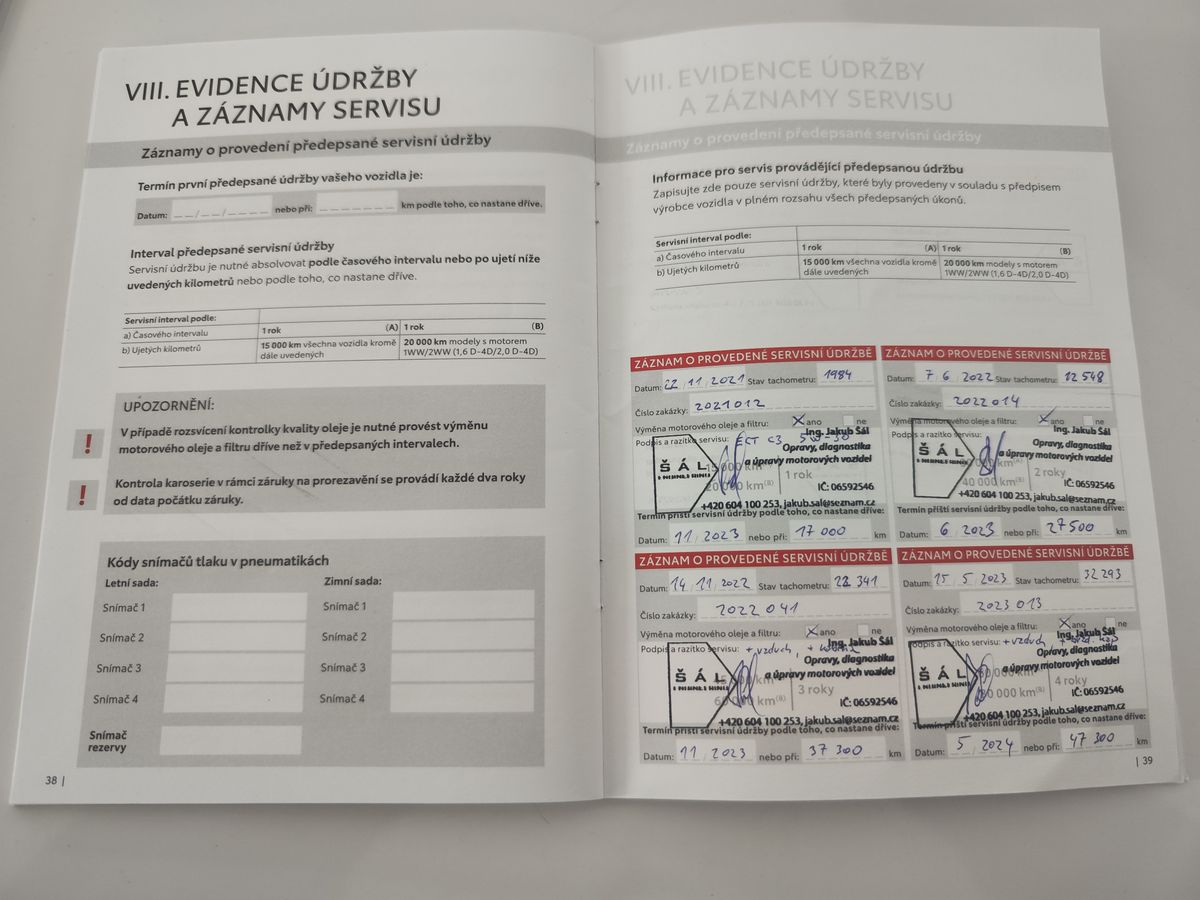 VIII. EVIDENCE ÚDRŽBY
A ZÁZNAMY SERVISU
Záznamy o provedení předepsané servisní údržby
Termín první předepsané údržby vašeho vozidla je:
Datum: __/__/____ nebo při: _______ km podle toho, co nastane dříve.
Interval předepsané servisní údržby
Servisní údržbu je nutné absolvovat podle časového intervalu nebo po ujetí níže
uvedených kilometrů nebo podle toho, co nastane dříve.
Servisní interval podle:
a) Časového intervalu 1 rok (A) 1 rok (B)
b) Ujetých kilometrů 15 000 km všechna vozidla kromě 20 000 km modely s motorem
dále uvedených 1WW/2WW (1,6 D-4D/2,0 D-4D)
UPOZORNĚNÍ:
! V případě rozsvícení kontrolky kvality oleje je nutné provést výměnu
motorového oleje a filtru dříve než v předepsaných intervalech.
! Kontrola karoserie v rámci záruky na prorezavění se provádí každé dva roky
od data počátku záruky.
Kódy snímačů tlaku v pneumatikách
Letní sada: Zimní sada:
Snímač 1 Snímač 1
Snímač 2 Snímač 2
Snímač 3 Snímač 3
Snímač 4 Snímač 4
Snímač
rezervy
38 |
VIII. EVIDENCE ÚDRŽBY
A ZÁZNAMY SERVISU
Záznamy o provedení předepsané servisní údržby
Informace pro servis provádějící předepsanou údržbu
Zapisujte zde pouze servisní údržby, které byly provedeny v souladu s předpisem
výrobce vozidla v plném rozsahu všech předepsaných úkonů.
Servisní interval podle:
a) Časového intervalu 1 rok (A) 1 rok (B)
b) Ujetých kilometrů 15 000 km všechna vozidla kromě 20 000 km modely s motorem
dále uvedených 1WW/2WW (1,6 D-4D/2,0 D-4D)
ZÁZNAM O PROVEDENÉ SERVISNÍ ÚDRŽBĚ
Datum: 22 / 11 / 2021 Stav tachometru: 1984
Číslo zakázky: 2021012
Výměna motorového oleje a filtru: X ano ne
Podpis a razítko servisu: ECT C3 5W-30
Ing. Jakub Šál
Opravy, diagnostika
a úpravy motorových vozidel
ŠÁL
15 000 km
20 000 km(B) 1 rok
IČ: 06592546
+420 604 100 253, jakub.sal@seznam.cz
Termín příští servisní údržby podle toho, co nastane dříve:
Datum: 11 / 2023 nebo při: 17 000 km
ZÁZNAM O PROVEDENÉ SERVISNÍ ÚDRŽBĚ
Datum: 7 / 6 / 2022 Stav tachometru: 12 548
Číslo zakázky: 2022014
Výměna motorového oleje a filtru: X ano ne
Podpis a razítko servisu:
Ing. Jakub Šál
Opravy, diagnostika
a úpravy motorových vozidel
ŠÁL
40 000 km(B) 2 roky
IČ: 06592546
+420 604 100 253, jakub.sal@seznam.cz
Termín příští servisní údržby podle toho, co nastane dříve:
Datum: 6 / 2023 nebo při: 27500 km
ZÁZNAM O PROVEDENÉ SERVISNÍ ÚDRŽBĚ
Datum: 14 / 11 / 2022 Stav tachometru: 22 341
Číslo zakázky: 2022 041
Výměna motorového oleje a filtru: X ano ne
Podpis a razítko servisu: + vzduch, +
Ing. Jakub Šál
Opravy, diagnostika
a úpravy motorových vozidel
ŠÁL
60 000 km(B) 3 roky
IČ: 06592546
+420 604 100 253, jakub.sal@seznam.cz
Termín příští servisní údržby podle toho, co nastane dříve:
Datum: 11 / 2023 nebo při: 37 300 km
ZÁZNAM O PROVEDENÉ SERVISNÍ ÚDRŽBĚ
Datum: 15 / 5 / 2023 Stav tachometru: 32 293
Číslo zakázky: 2023 013
Výměna motorového oleje a filtru: X ano ne
Podpis a razítko servisu: + vzduch +
Ing. Jakub Šál
Opravy, diagnostika
a úpravy motorových vozidel
ŠÁL
60 000 km(A)
80 000 km(B) 4 roky
IČ: 06592546
+420 604 100 253, jakub.sal@seznam.cz
Termín příští servisní údržby podle toho, co nastane dříve:
Datum: 5 / 2024 nebo při: 47 300 km
| 39